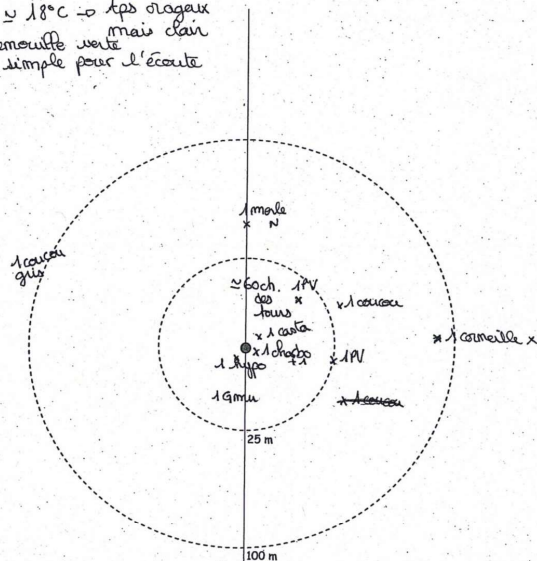 ≃ 18°C → tps orageux
mais clair
enouille verte
simple pour l'écoute
1 merle
N
1 coucou
gris
≃ 60 ch.
des
tours
1 PV
1 coucou
1 casta
1 charbo
+1
1 hypo
1 PV
1 corneille
1 Gmu
1 coucou
25 m
100 m